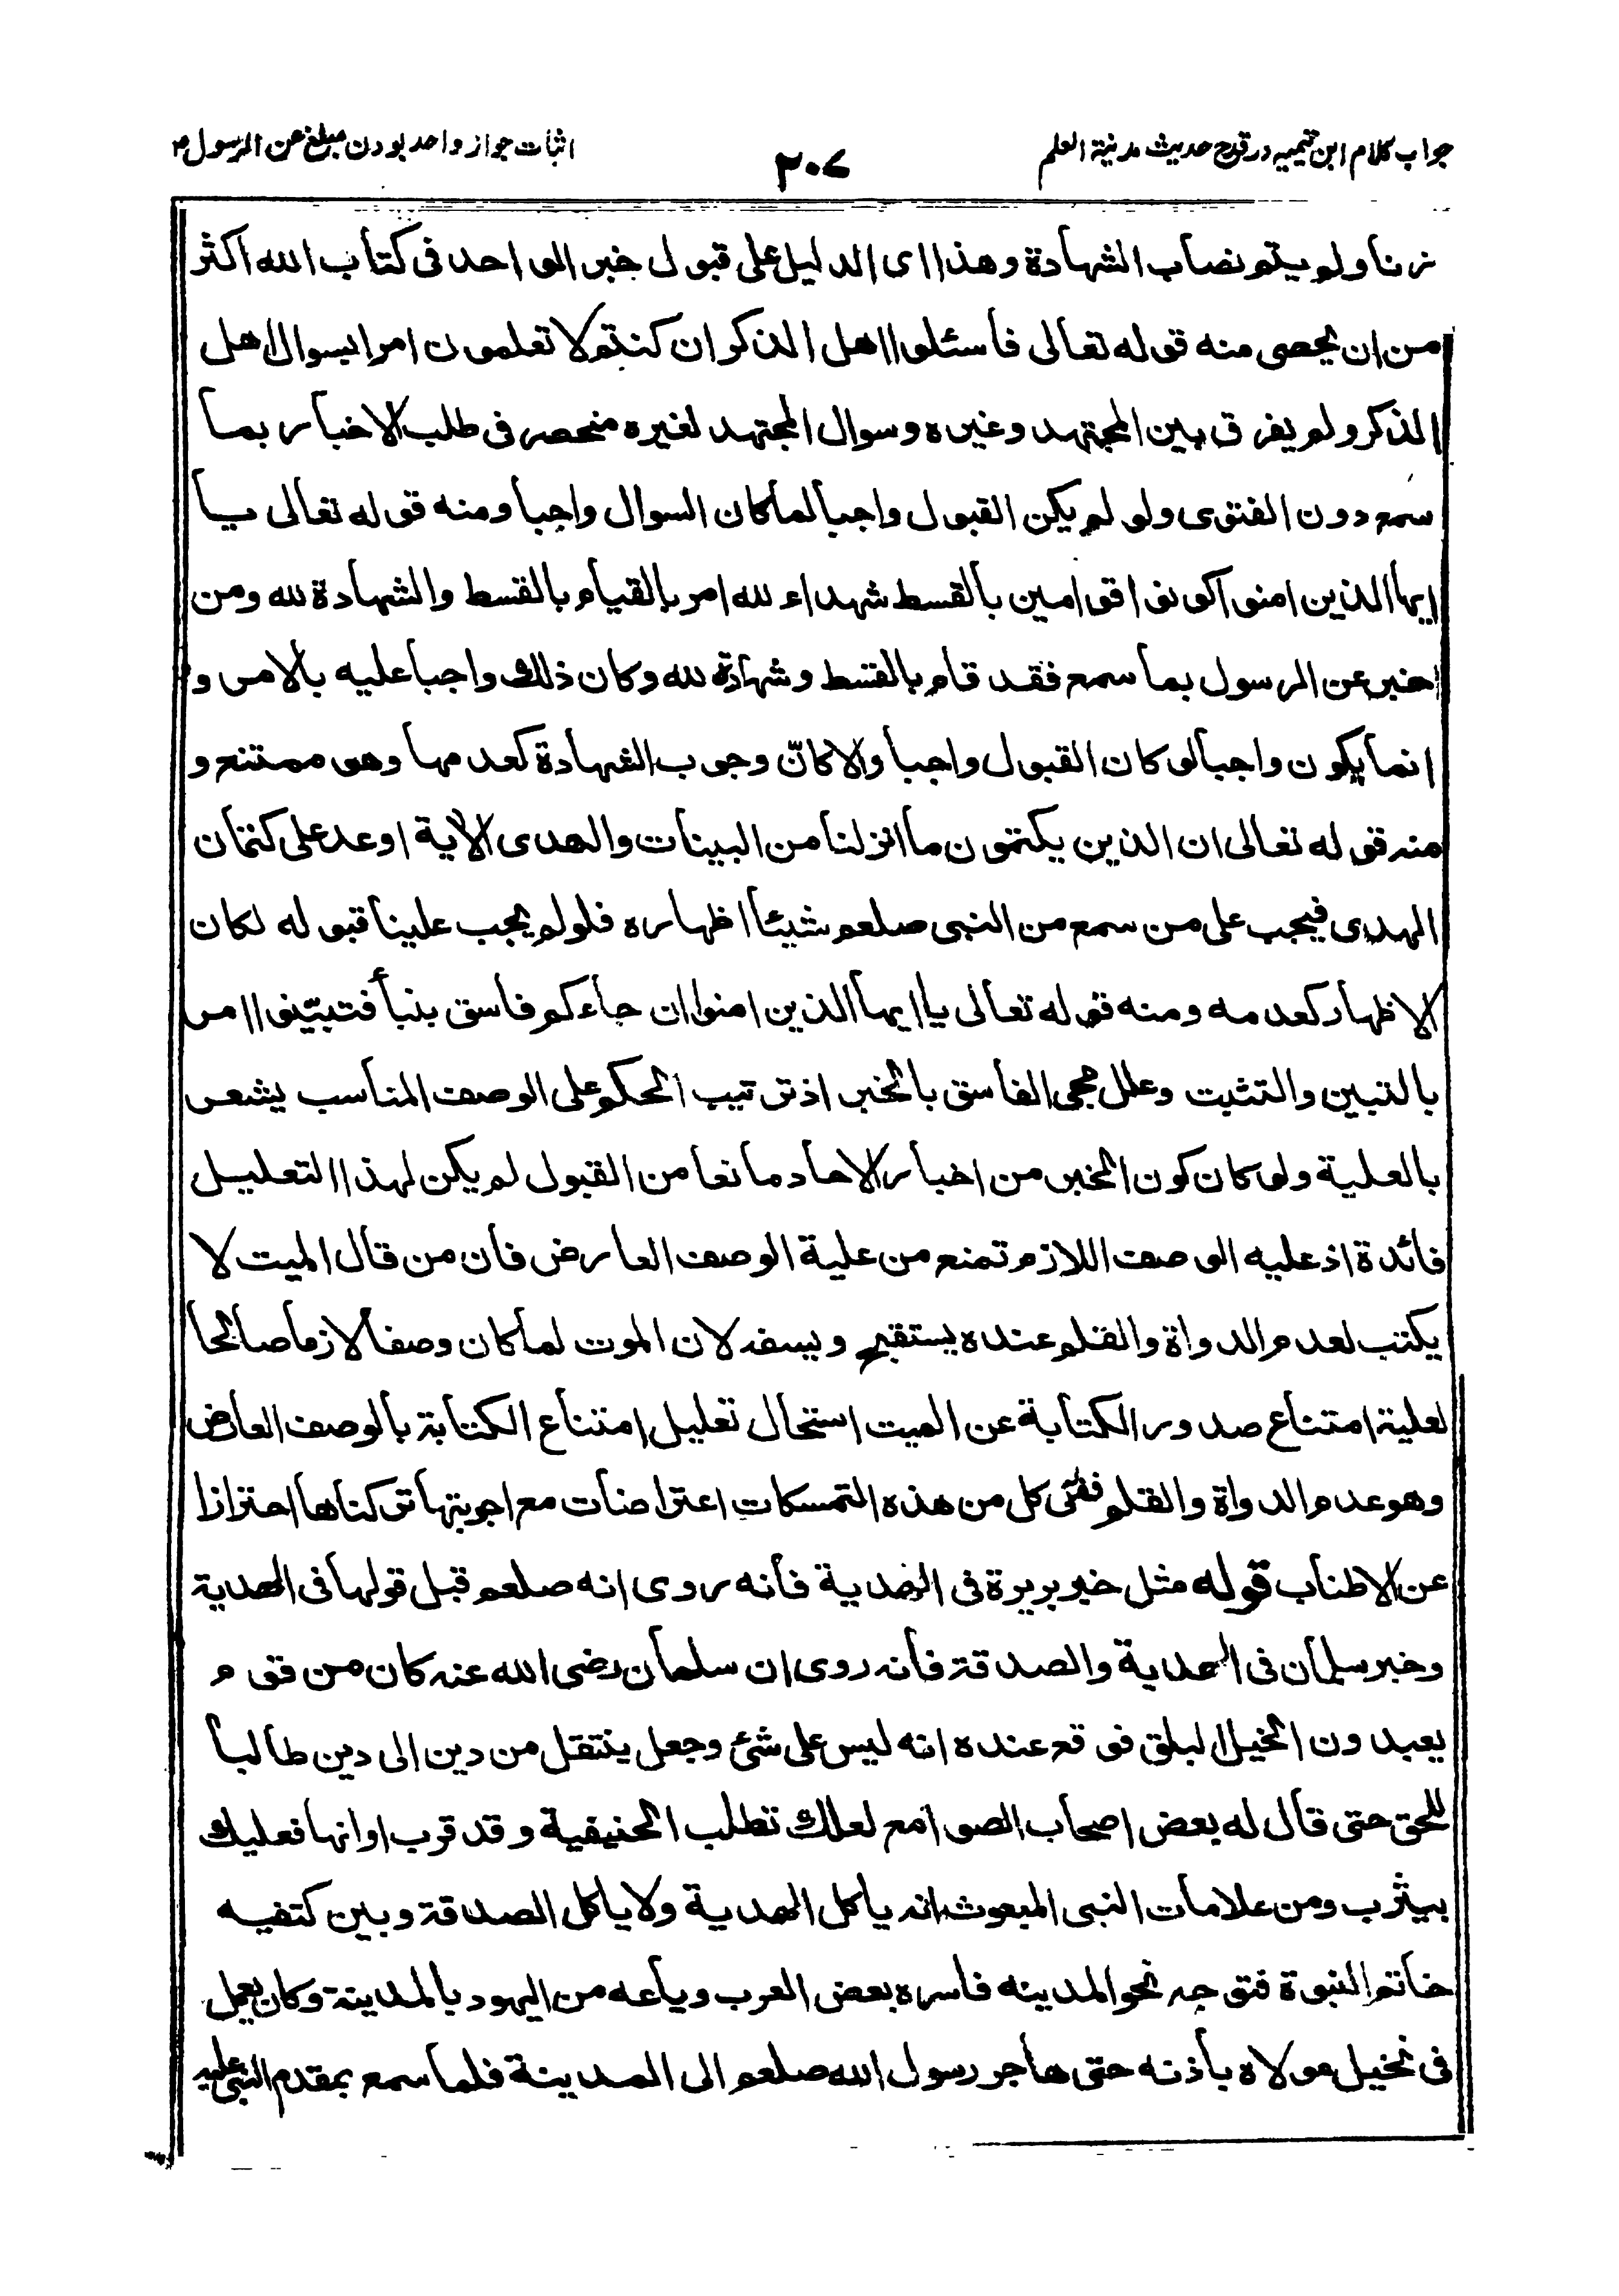 جواب کلام ابن تیمیه در قدح حدیث مدینة العلم
۲۰۷
اثبات جواز واحد بودن مبلغ عن الرسول ص
زنا ولم يتم نصاب الشهادة وهذا اى الدليل على قبول خبر الواحد فى كتاب الله اكثر
من ان يحصى منه قوله تعالى فاسئلوا اهل الذكر ان كنتم لا تعلمون امرا بسوال اهل
الذكر ولم يفرق بين المجتهد وغيره وسوال المجتهد لغيره منحصر فى طلب الاخبار بما
سمع دون الفتوى ولو لم يكن القبول واجبا لما كان السوال واجبا ومنه قوله تعالى يا
ايها الذين امنوا كونوا قوامين بالقسط شهداء لله امر بالقيام بالقسط والشهادة لله ومن
اخبر عن الرسول بما سمع فقد قام بالقسط وشهادة لله وكان ذلك واجبا عليه بالامر و
انما يكون واجبا لو كان القبول واجبا والا كان وجوب الشهادة كعدمها وهو ممتنع و
منه قوله تعالى ان الذين يكتمون ما انزلنا من البينات والهدى الاية اوعد على كتمان
الهدى فيجب على من سمع من النبى صلعم شيئا اظهاره فلو لم يجب علينا قبوله لكان
الاظهار كعدمه ومنه قوله تعالى يا ايها الذين امنوا ان جاءكم فاسق بنبأ فتبيّنوا امر
بالتبين والتثبت وعلل بمجى الفاسق بالخبر اذ ترتيب الحكم على الوصف المناسب يشعر
بالعلية ولو كان كون الخبر من اخبار الاحاد مانعا من القبول لم يكن لهذا التعليل
فائدة اذ عليه الوصف اللازم تمنع من علية الوصف العارض فان من قال الميت لا
يكتب لعدم الدواة والقلم عنده يستقبح ويسفه لان الموت لما كان وصفا لازما صالحا
لعلية امتناع صدور الكتابة عن الميت استحال تعليل امتناع الكتابة بالوصف العارض
وهو عدم الدواة والقلم ففى كل من هذه التمسكات اعتراضات مع اجوبتها تركناها احترازا
عن الاطناب قوله مثل خبر بريرة فى الهدية فانه روى انه صلعم قبل قولها فى الهدية
وخبر سلمان فى الهدية والصدقة فانه روى ان سلمان رضى الله عنه كان من قوم
يعبدون الخيل البلق فوقع عنده انه ليس على شئ وجعل ينتقل من دين الى دين طالبا
للحق حتى قال له بعض اصحاب الصوامع لعلك تطلب الحنيفية وقد قرب اوانها فعليك
بيثرب ومن علامات النبى المبعوث انه ياكل الهدية ولا ياكل الصدقة وبين كتفيه
خاتم النبوة فتوجه نحو المدينه فاسره بعض العرب وباعه من اليهود بالمدينة وكان يعمل
فى نخيل مولاه باذنه حتى هاجر رسول الله صلعم الى المدينة فلما سمع بمقدم النبى عليه